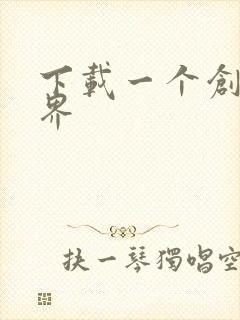 下載一个創
界
抉一琴獨唱空